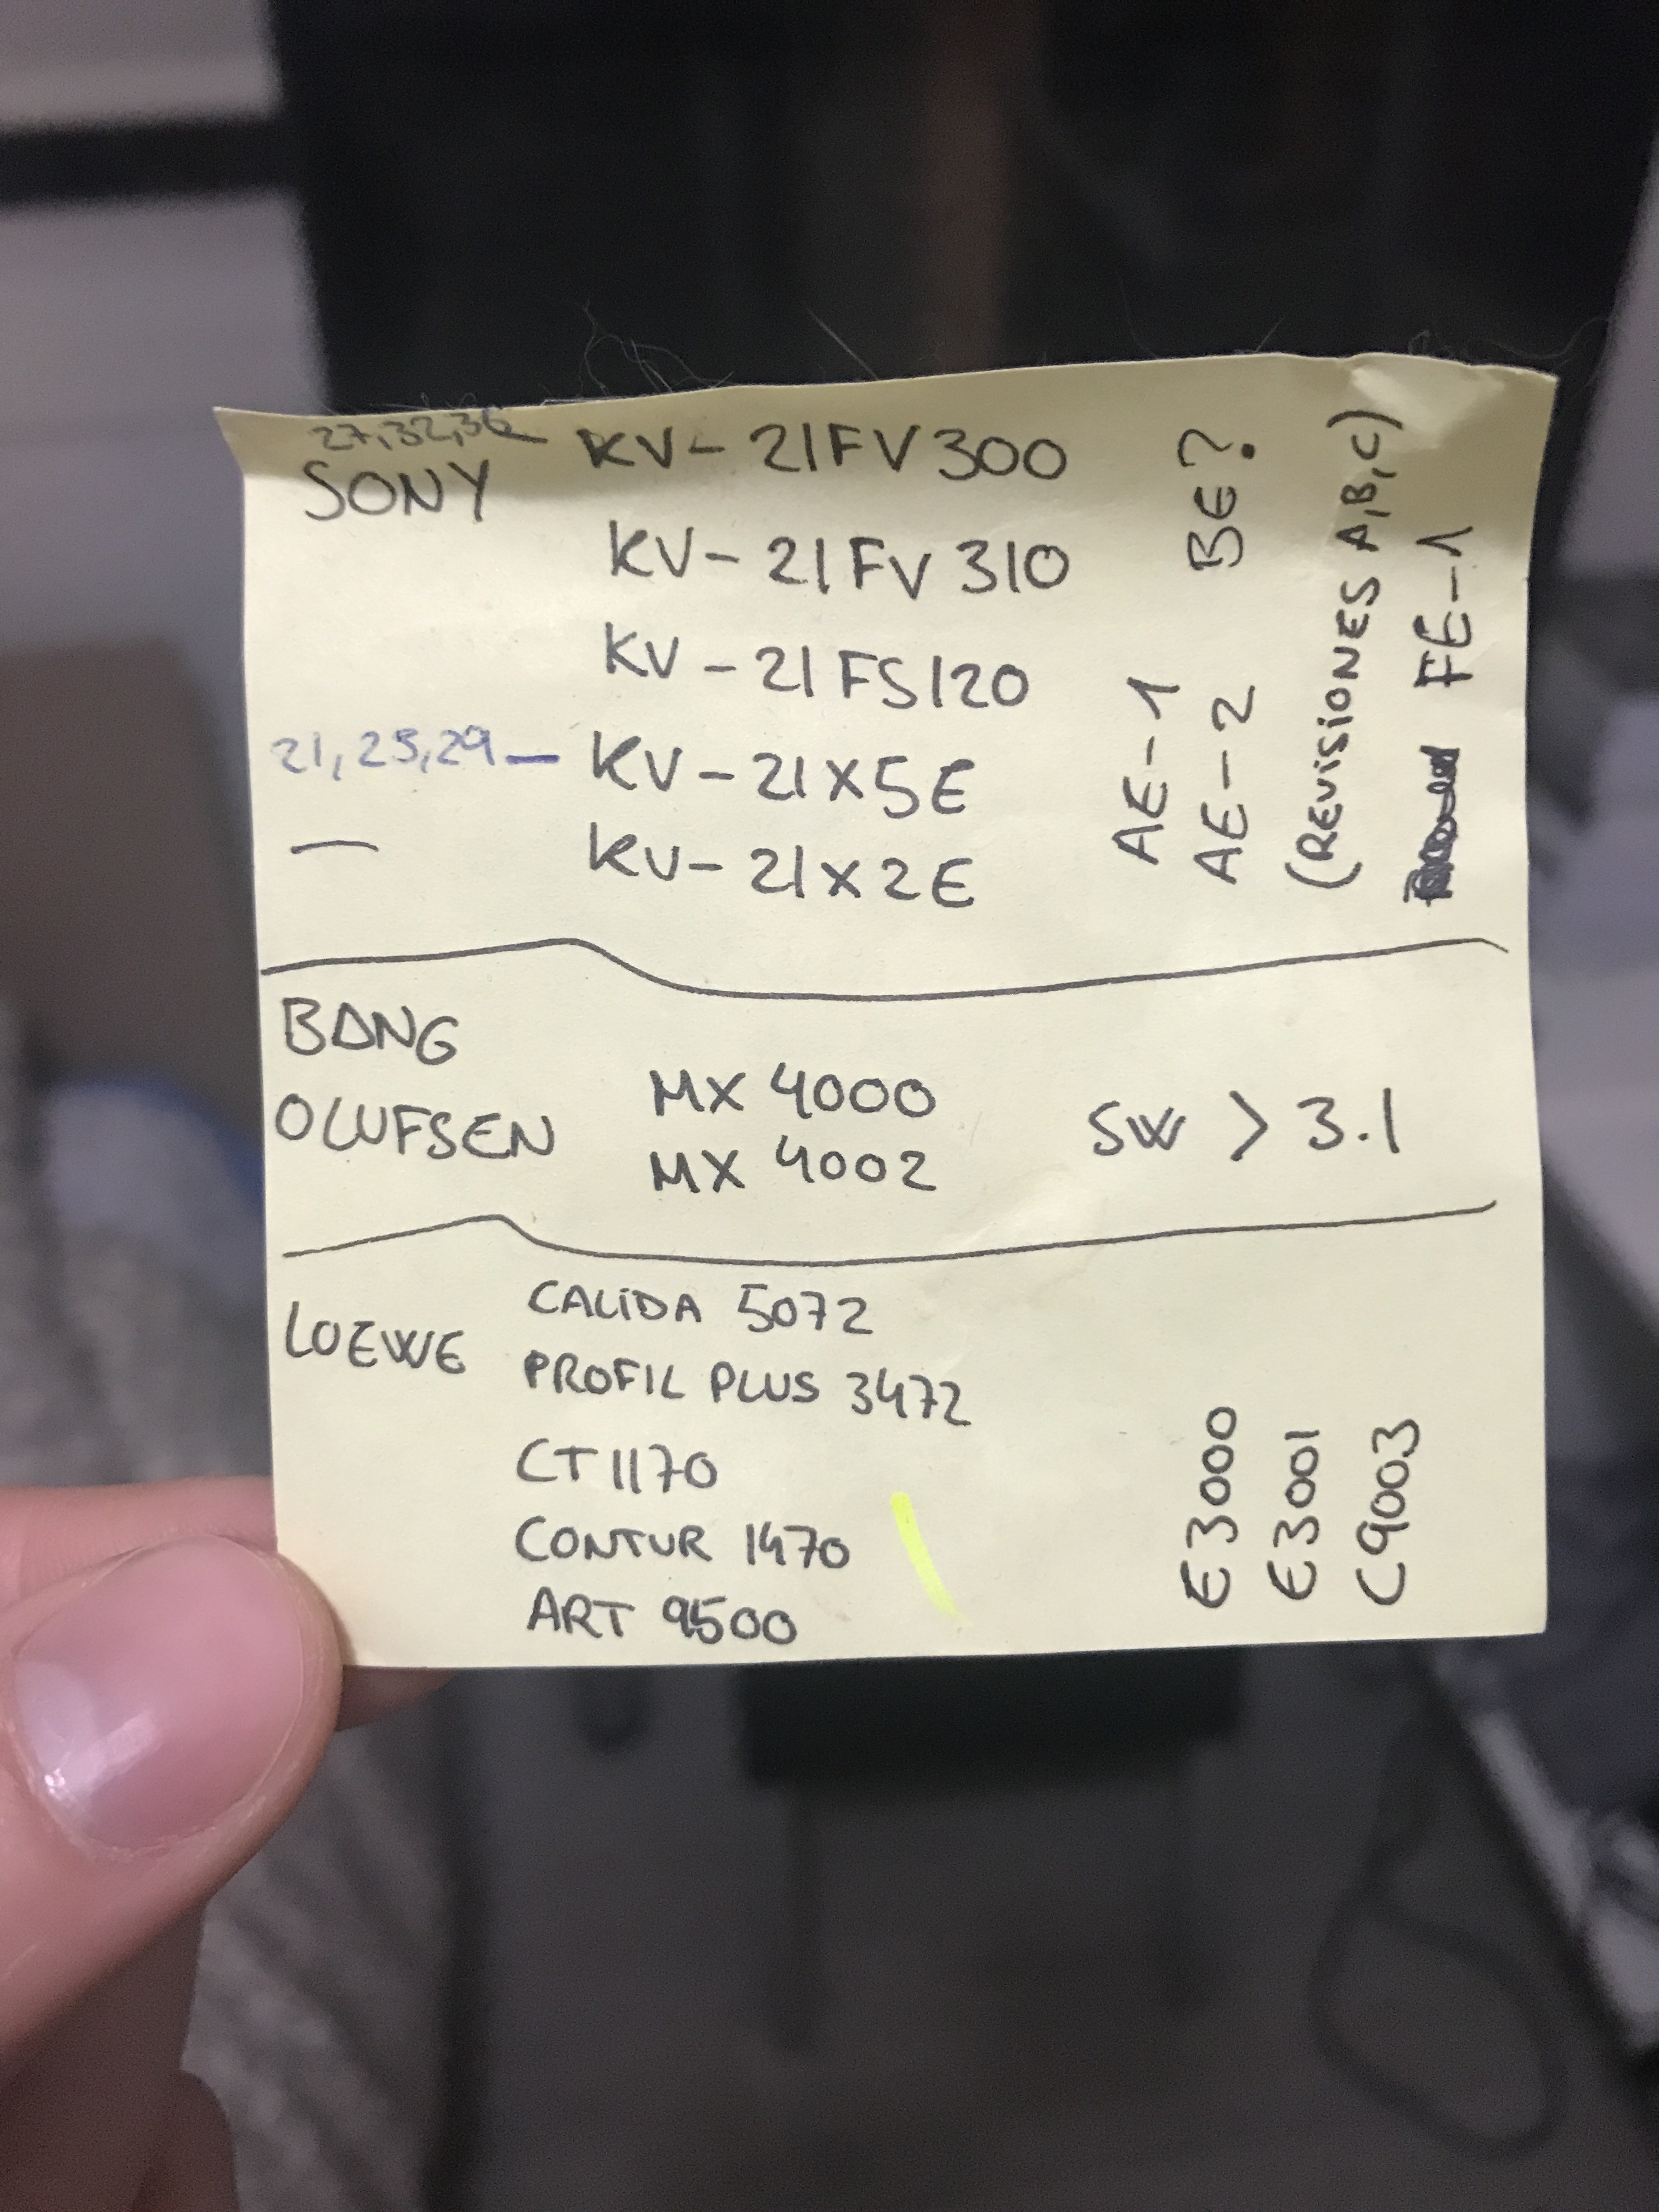 27,32,36
SONY
KV-21FV300
KV-21FV310
KV-21FS120
21,25,29 — KV-21X5E
— KV-21X2E
AE-1
AE-2 BE?
(REVISIONES A,B,C)
FE-1
BANG
OLUFSEN
MX 4000
MX 4002
SW > 3.1
LOEWE
CALIDA 5072
PROFIL PLUS 3472
CT1170
CONTUR 1470
ART 9500
E3000
E3001
C9003